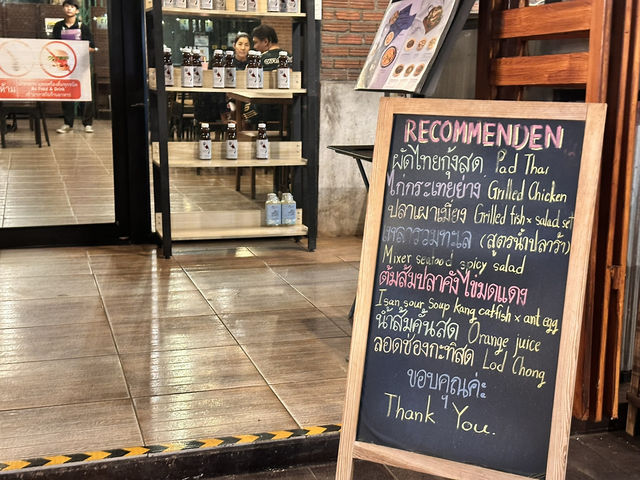 ห้าม
No Food & Drink
RECOMMENDEN
ผัดไทยกุ้งสด Pad Thai
ไก่กระเทยย่าง Grilled Chicken
ปลาเผาเมี่ยง Grilled fish x salad set
รวมทะเล (สูตรน้ำปลาร้า)
Mixer seafood spicy salad
ต้มส้มปลาคังไข่มดแดง
Isan sour soup kang catfish x ant egg
น้ำส้มคั้นสด Orange juice
ลอดช่องกะทิสด Lod Chong
ขอบคุณค่ะ
Thank You.